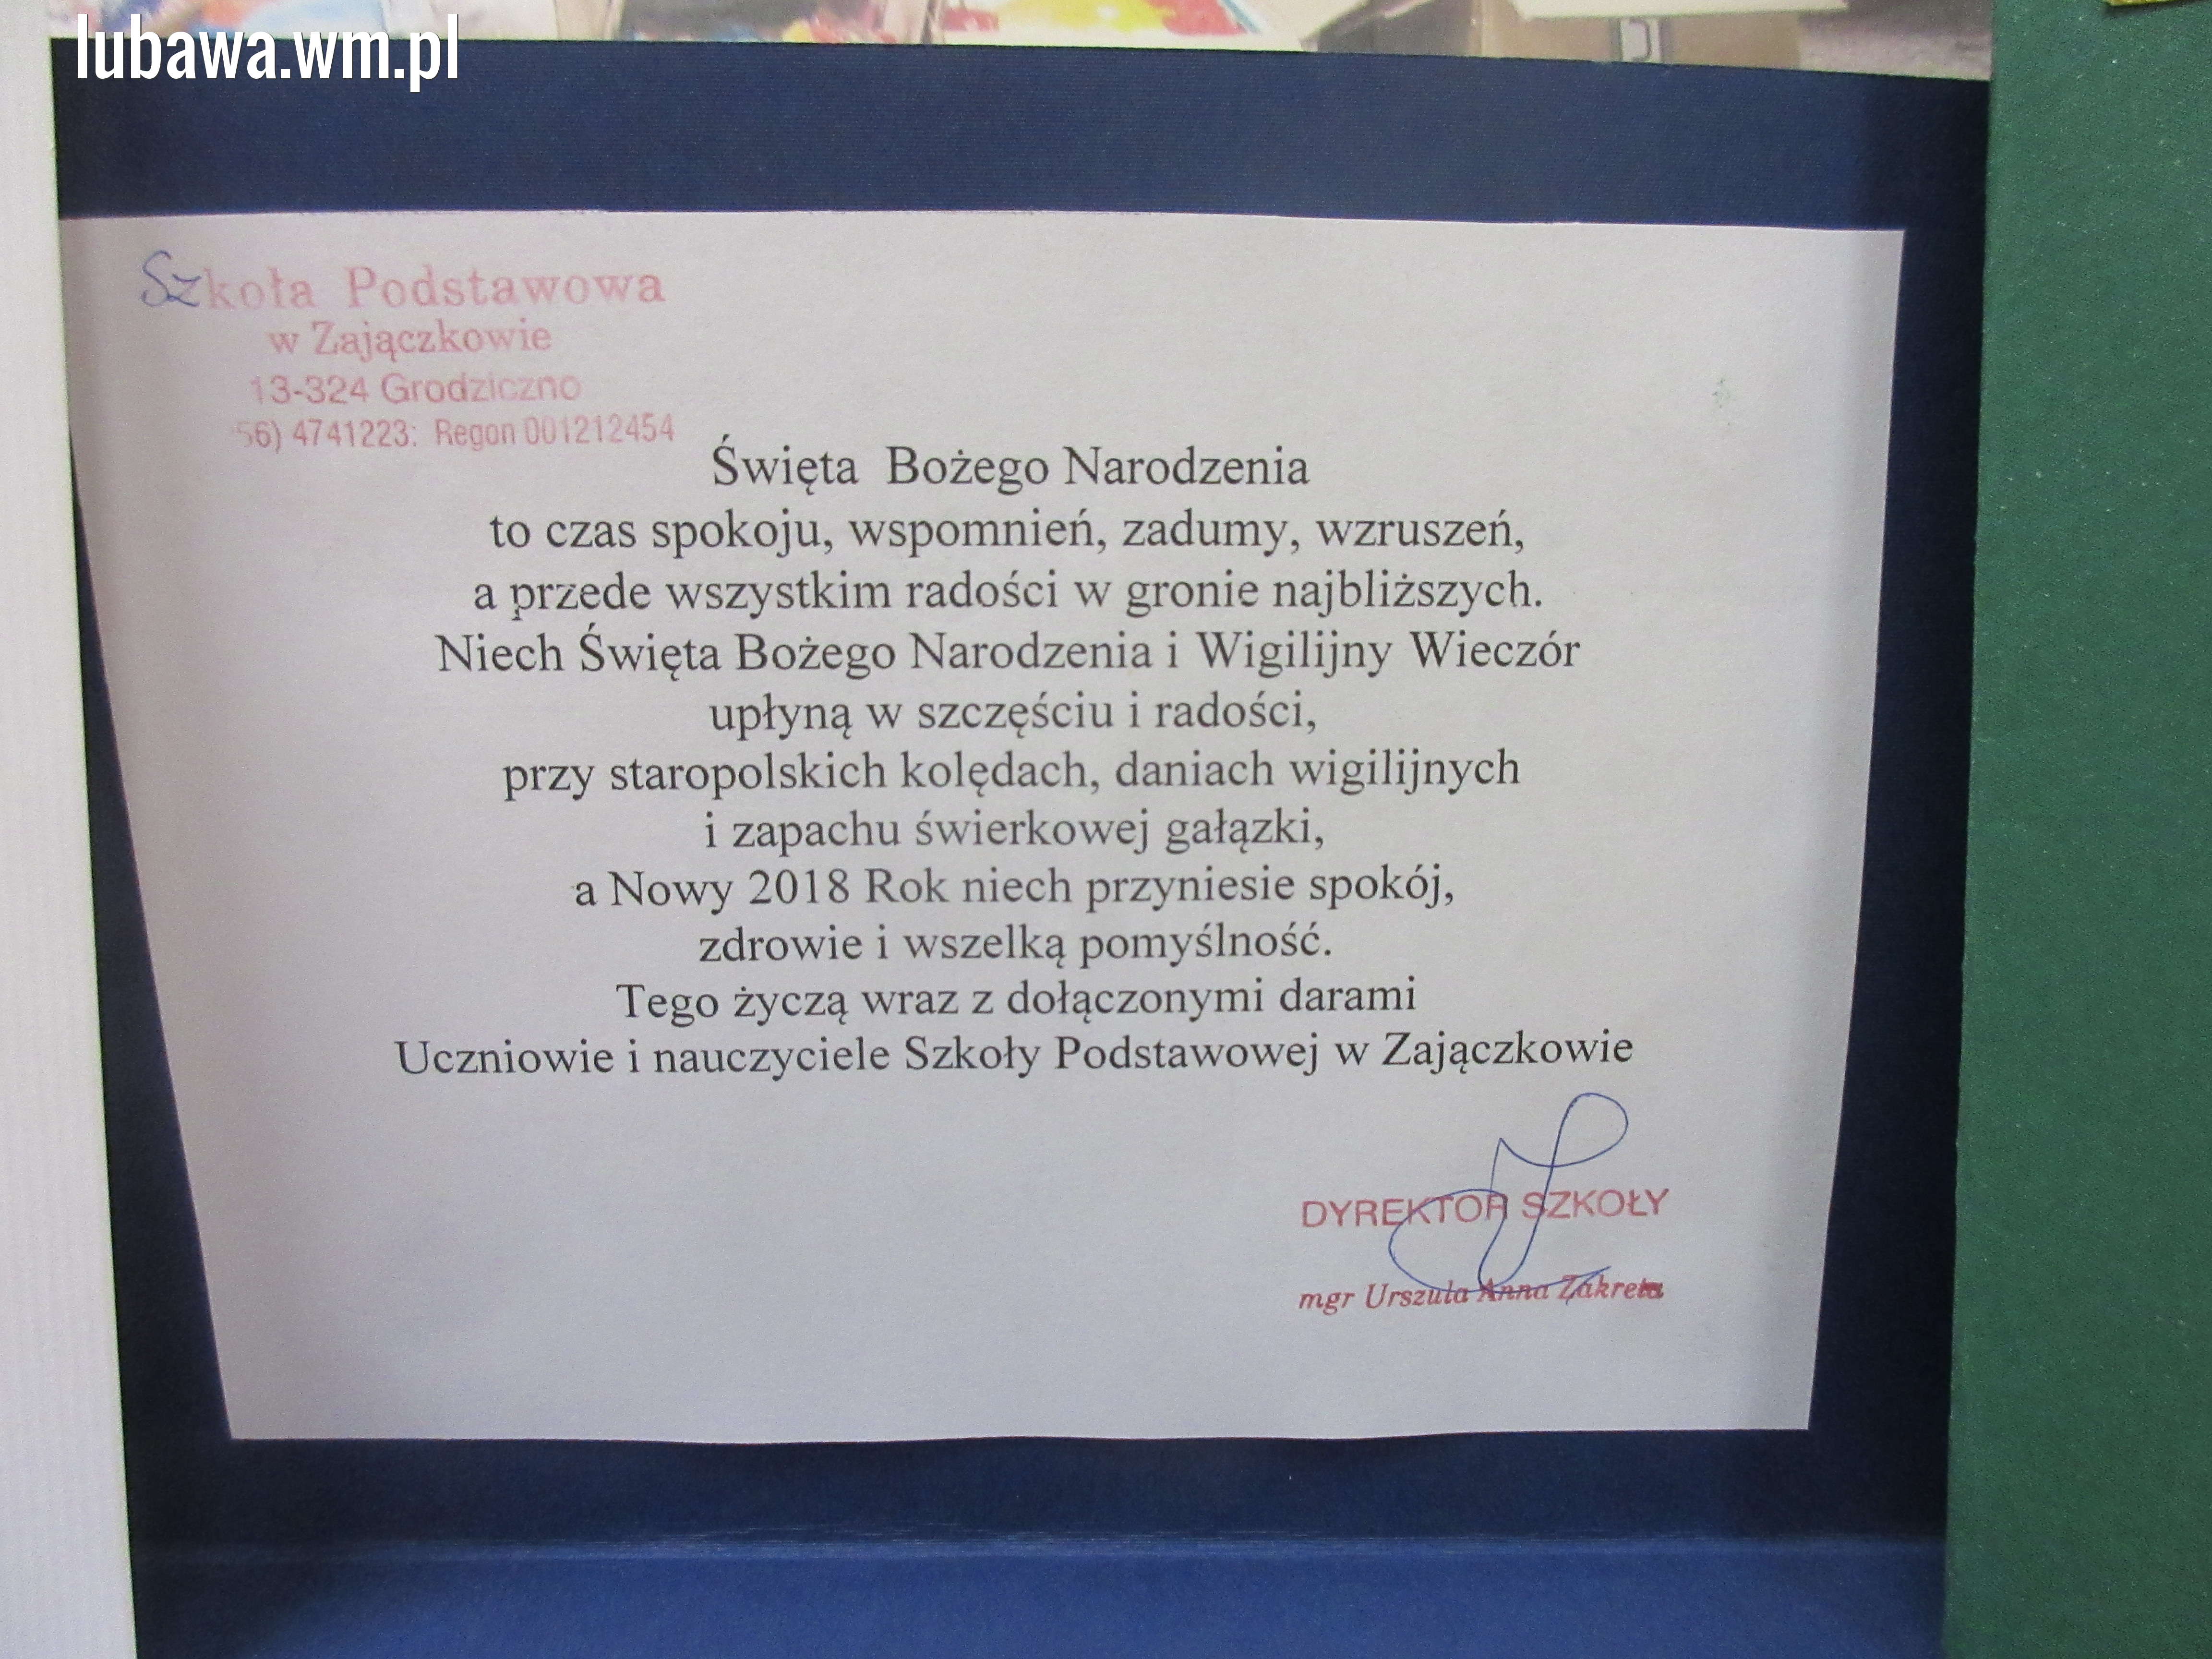 lubawa.wm.pl
Szkoła Podstawowa
w Zajączkowie
13-324 Grodziczno
56) 4741223: Regon 001212454
Święta Bożego Narodzenia
to czas spokoju, wspomnień, zadumy, wzruszeń,
a przede wszystkim radości w gronie najbliższych.
Niech Święta Bożego Narodzenia i Wigilijny Wieczór
upłyną w szczęściu i radości,
przy staropolskich kolędach, daniach wigilijnych
i zapachu świerkowej gałązki,
a Nowy 2018 Rok niech przyniesie spokój,
zdrowie i wszelką pomyślność.
Tego życzą wraz z dołączonymi darami
Uczniowie i nauczyciele Szkoły Podstawowej w Zajączkowie
DYREKTOR SZKOŁY
mgr Urszula Anna Zakreta